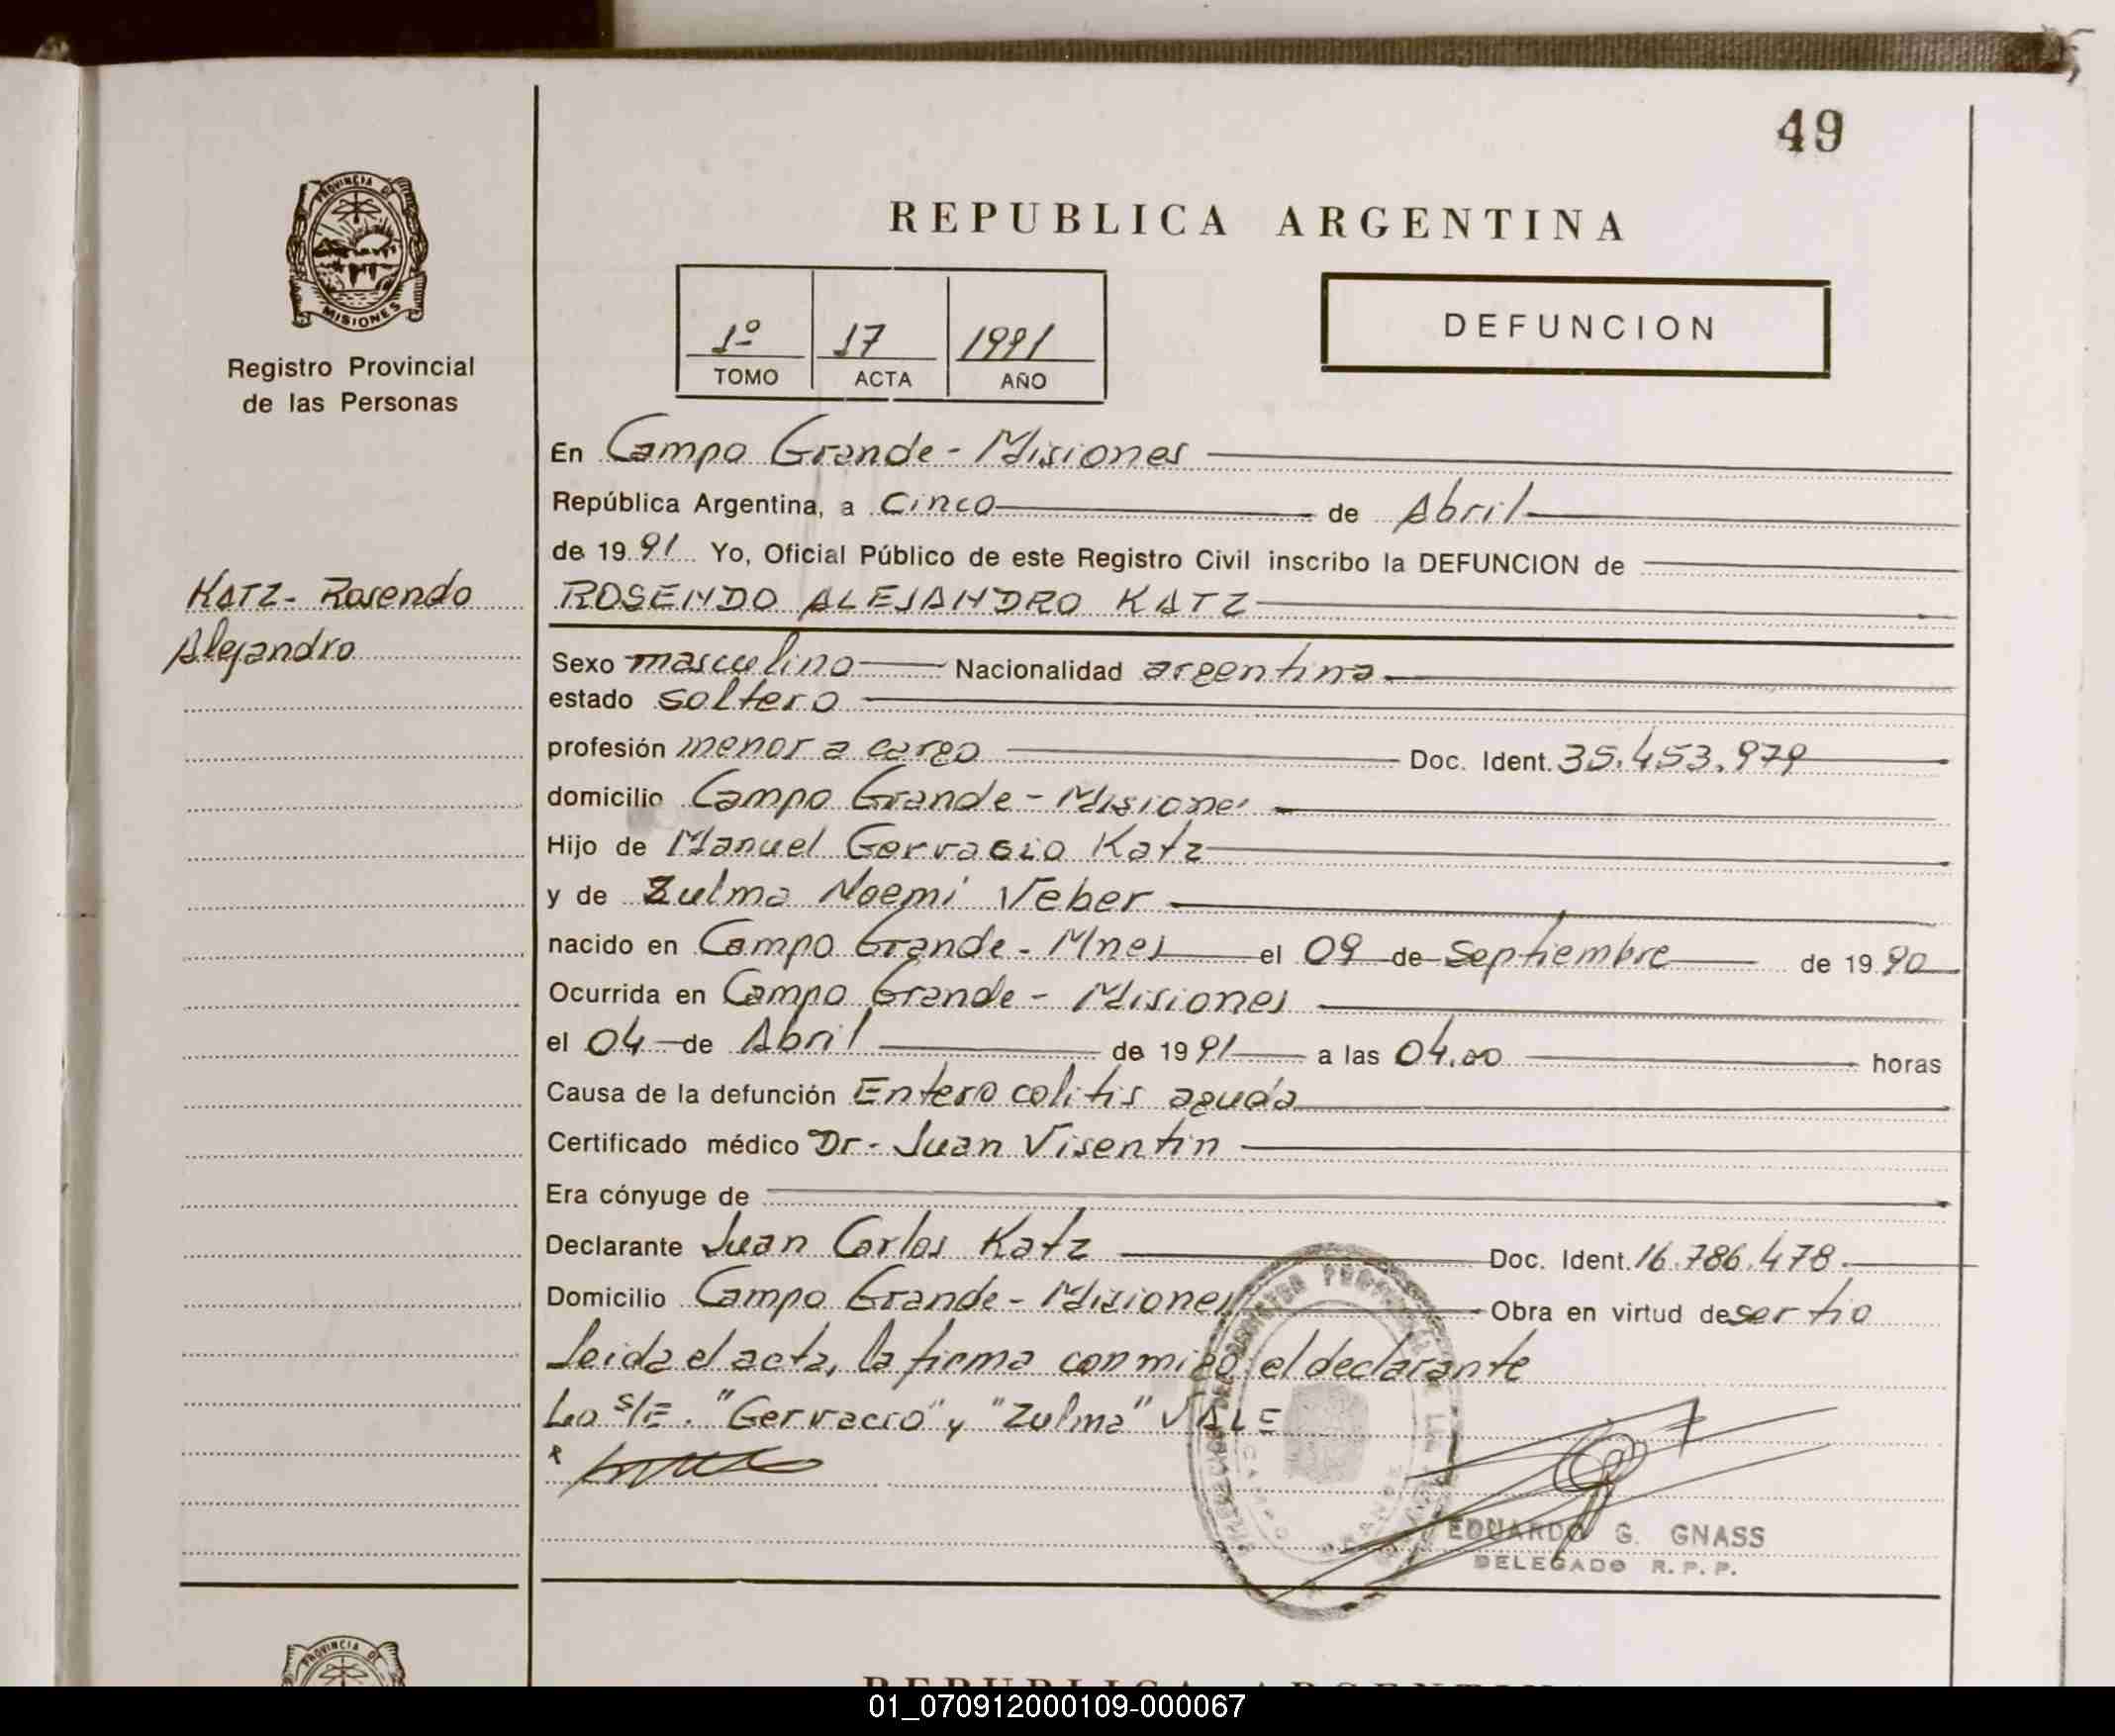 49
PROVINCIA DE
MISIONES
Registro Provincial
de las Personas
REPUBLICA ARGENTINA
1º 17 1991
TOMO ACTA AÑO
DEFUNCION
En Campo Grande - Misiones
República Argentina, a Cinco de Abril
de 1991 Yo, Oficial Público de este Registro Civil inscribo la DEFUNCION de
KATZ - Rosendo
Alejandro
ROSENDO ALEJANDRO KATZ
Sexo masculino Nacionalidad argentina
estado soltero
profesión menor a cargo Doc. Ident. 35.453.979
domicilio Campo Grande - Misiones
Hijo de Manuel Gervacio Katz
y de Zulma Noemi Veber
nacido en Campo Grande - Mnes el 09 de Septiembre de 1990
Ocurrida en Campo Grande - Misiones
el 04 de Abril de 1991 a las 04.00 horas
Causa de la defunción Entero colitis aguda
Certificado médico Dr - Juan Visentin
Era cónyuge de
Declarante Juan Carlos Katz Doc. Ident. 16.786.478
Domicilio Campo Grande - Misiones Obra en virtud de ser tio
leida el acta, la firma conmigo el declarante
Lo S/E. "Gervacio" y "Zulma" VALE
CAMPO GRANDE
EDUARDO G. GNASS
DELEGADO R. P. P.
PROVINCIA DE
REPUBLICA ARGENTINA
01_070912000109-000067